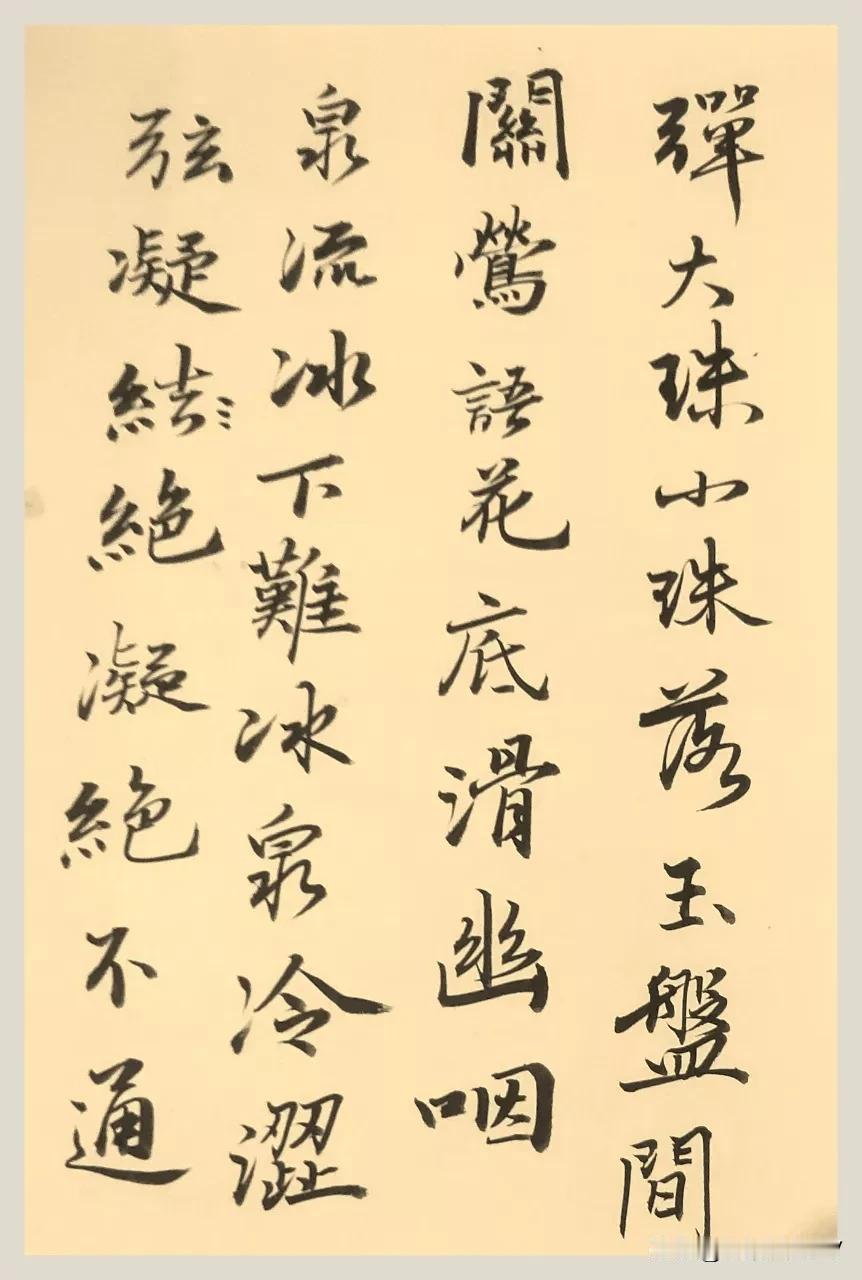 彈大珠小珠落玉盤間
關鶯語花底滑幽咽
泉流冰下難冰泉冷澀
弦凝結絕凝絕不通